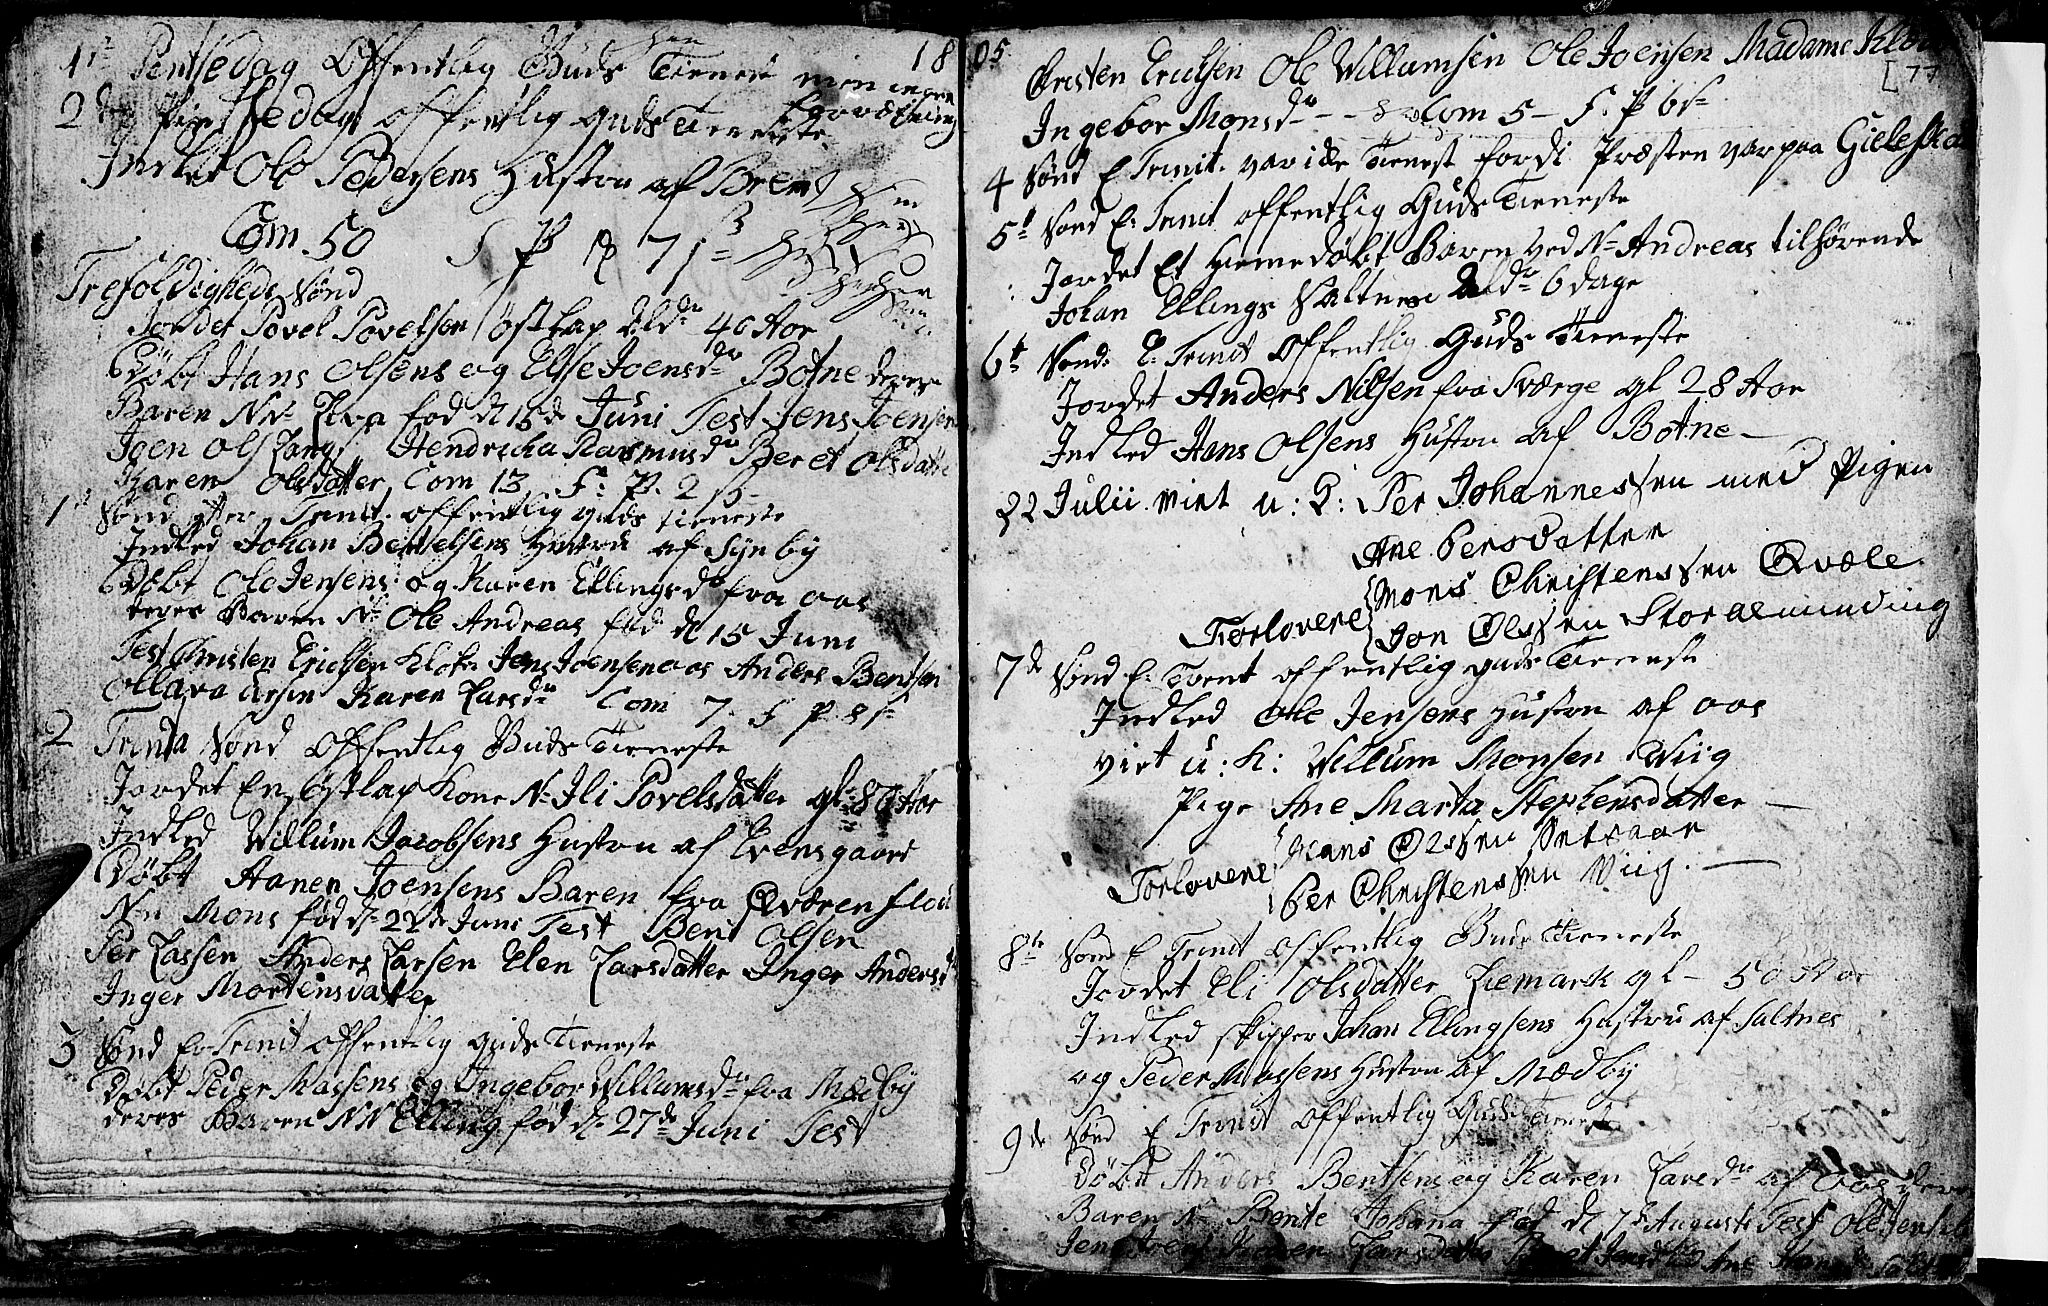 1te Pintsedag Offentlig Guds Tieneste min ingen
2den Pintsedag offentlig guds Tieneste forrætning
Indlet Ole Pedersens Hustou af Brem
Com 50 S P
Trefoldigheds Sønd
Jordet Povel Povelsen Østlap Alder 40 Aar
Døbt Hans Olsens og Else Joensdr Botne deres
Baren Nn Eva fød d 15de Juni Test Jens Joensen
Joen Ols Lang Hendricha Rasmusdr Beret Olsdatter
Karen Olsdatter Com 13 F. P. 2
1te Sønd efter Trinit. offentlig guds tieneste
Indled Johan Bentelsens Hustru af Synby
Døbt Ole Jensens og Karen Ellingsdr fra Aas
deres Baren N Ole Andreas fød d 15 Juni
Test Christen Ericksen Klok Jens Joensen aas Anders Bentsen
Karen Larsdr Com 7. F P 8 s
2 Trinita Sønd Offentlig Guds Tieneste
Jordet En Østlap Kone N Ili Povelsdatter gl 80 Aar
Indled Willum Jacobsens Hustou af Evensgaard
Døbt Hanen Joensens Baren fra Qværenflou
Nn Mons fød d 22de Juni Test Bent Olsen
Per Lassen Anders Larsen Elen Larsdatter Inger Andersdr
Inger Mortensdatter
3 Sønd E. Trinit Offentlig guds Tieneste
Døbt Peder Massens og Ingebor Willumsdr fra Mædby
deres Baren NN Elling fød d. 27de Juni Test
1805
Christen Ericksen Ole Willumsen Ole Joensen Madame Klo
[77
Ingebor Monsdr Com 5 F. P 6 s
4 Sønd E Trinit. var icke Tienest fordi Præsten var paa Gieleskaa
5te Sønd E. Trinit offentlig Guds Tieneste
Jordet Et Hiemedøbt Baren ved N Andreas tilhørende
Johan Ellings Saltnes Aldr 6 dage
6te Sønd. E. Trinit offentlig Guds Tieneste
Jordet Anders Nilsen fra Sværge gl 28 Aar
Indled Hans Olsens Hustou af Botne
22 Julii viet u: K: Per Johannessen med Pigen
Ane Persdatter
Forlovere Mons Christenssen Qvale
Jon Olssen Storalmending
7de Sønd E. Trent offentlig guds Tieneste
Indled Ole Jensens Hustou af aas
viet u: K: Willum Monsen Wiig
Pige Ane Marta Stephensdatter
Forlovere Hans Olssen Setsaar
Per Christenssen Wiig.
8te Sønd E Trinit offentlig Guds Tieneste
Jordet Eli Olsdatter Liemark gl 50 Aar
Indled Skipper Johan Ellingsens Hustru af Saltnes
og Peder Massens Hustou af Mædby
9de Sønd E Trinit offentlig Guds Tieneste
Døbt Anders Bentsens og Karen Larsdr af aas deres
Baren N Bente Johana fød d 7de Augusti Test Ole Jensen
Jens Joens Karen Larsdatter Beret Ane